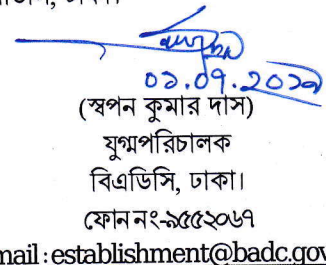 ০১.০৭.২০১৯
(স্বপন কুমার দাস)
যুগ্মপরিচালক
বিএডিসি, ঢাকা।
ফোন নং-৯৫৫২০৬৭
mail : establishment@badc.gov